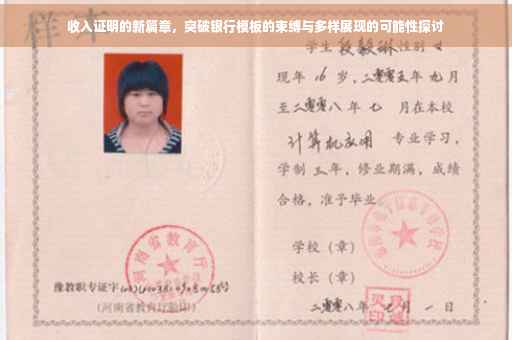 收入证明的新篇章，突破银行模板的束缚与多样展现的可能性探讨
样本
学生 性别 女
现年 16 岁，二零零五年 九月
至二零零八年 七 月在本校
计算机应用 专业学习，
学制 三年，修业期满，成绩
合格，准予毕业
学校（章）
校长（章）
二零零八年 月 一 日
河南省教育厅
豫教职专证字
（河南省教育厅验印）